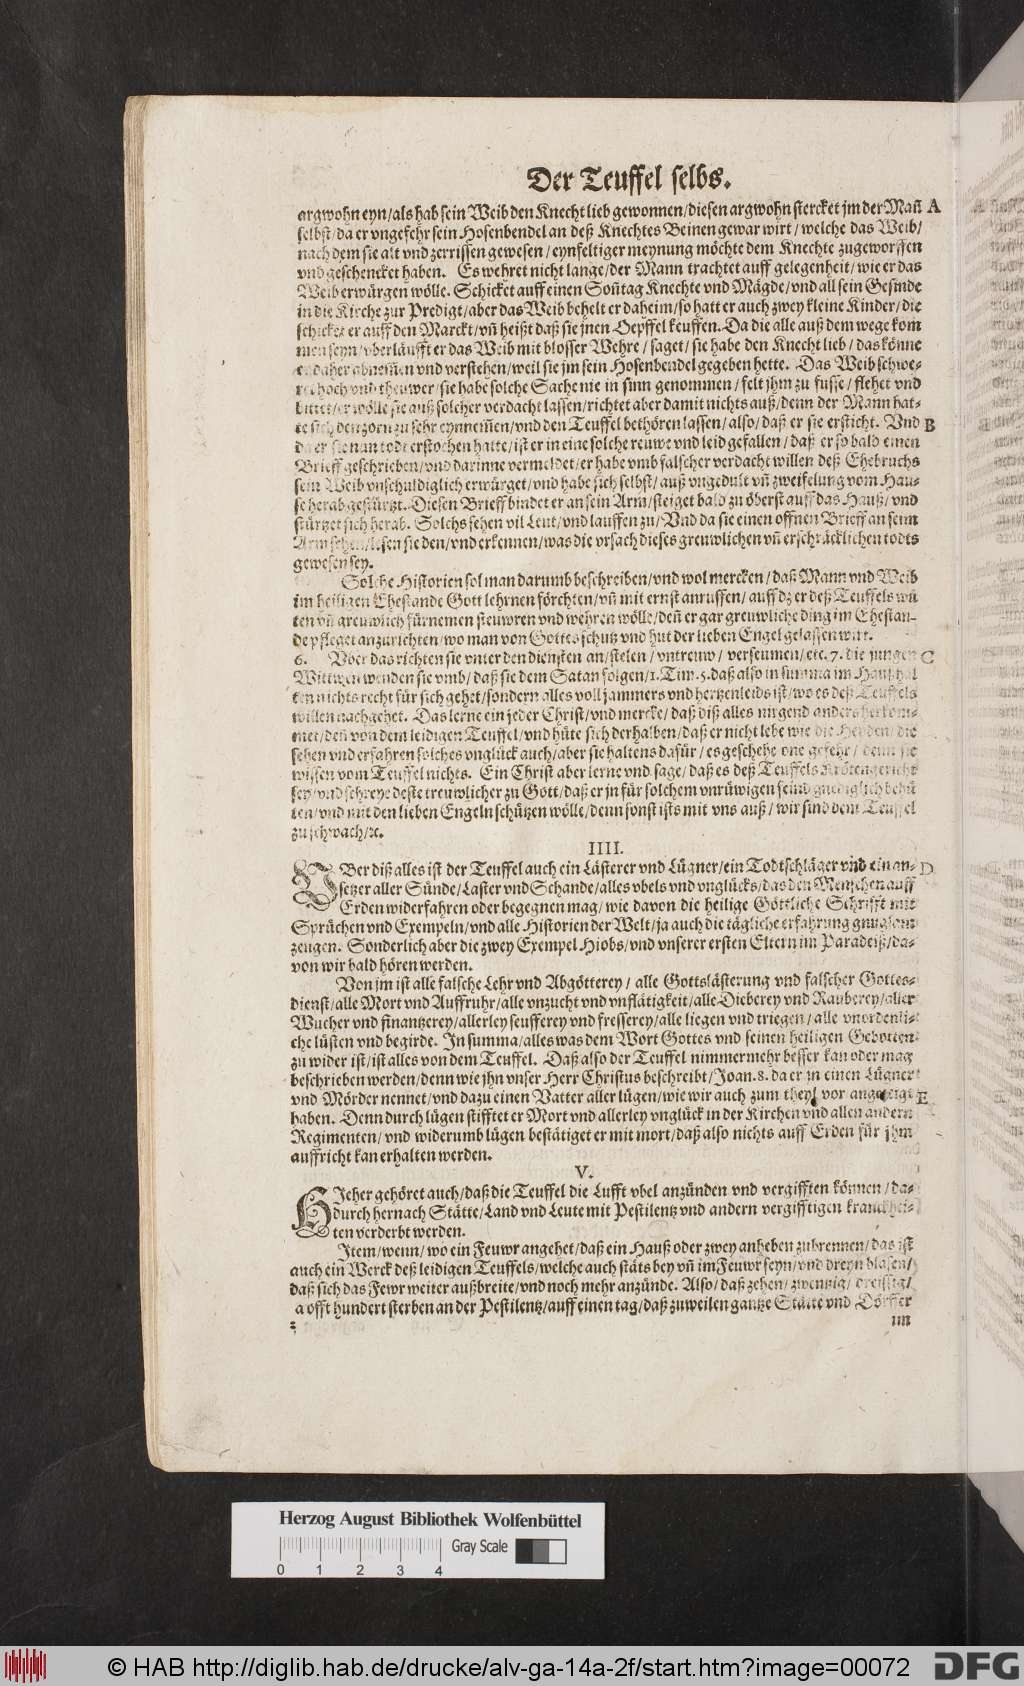 Der Teuffel selbs.
argwohn eyn/als hab sein Weib den Knecht lieb gewonnen/diesen argwohn stercket jm der Mañ A
selbst/da er vngefehr sein Hosenbendel an deß Knechtes Beinen gewar wirt/welche das Weib/
nach dem sie alt vnd zerrissen gewesen/eynfeltiger meynung möchte dem Knechte zugeworffen
vnd geschencket haben. Es wehret nicht lange/der Mann trachtet auff gelegenheit/wie er das
Weib erwürgen wölle. Schicket auff einen Soñtag Knechte vnd Mägde/vnd all sein Gesinde
in die Kirche zur Predigt/aber das Weib behelt er daheim/so hatt er auch zwey kleine Kinder/die
schicket er auff den Marckt/vñ heißt daß sie jnen Oepffel keuffen. Da die alle auß dem wege kom
men seyn/vberläufft er das Weib mit blosser Wehre/saget/sie habe den Knecht lieb/das könne
er daher abnemen vnd verstehen/weil sie jm sein Hosenbendel gegeben hette. Das Weib schwe-
ret hoch vnd thewer/sie habe solche Sache nie in sinn genommen/felt jhm zu fusse/flehet vnd
bittet/er wölle sie auß solcher verdacht lassen/richtet aber damit nichts auß/denn der Mann hat-
te sich den zorn zu sehr eynnemen/vnd den Teuffel bethören lassen/also/daß er sie ersticht. Vnd B
da er sie nun todt erstochen hatte/ist er in eine solche reuwe vnd leid gefallen/daß er so bald einen
Brieff geschrieben/vnd darinne vermeldet/er habe vmb falscher verdacht willen deß Ehebruchs
sein Weib vnschuldiglich erwürget/vnd habe sich selbst/auß vngedult vñ zweifelung vom Hau-
se herab gestürtzt. Diesen Brieff bindet er an sein Arm/steiget bald zu öberst auff das Hauß/vnd
stürtzet sich herab. Solchs sehen vil Leut/vnd lauffen zu/Vnd da sie einen offnen Brieff an seim
Arm sehen/lesen sie den/vnd erkennen/was die vrsach dieses greuwlichen vñ erschrücklichen todts
gewesen sey.
Solche Historien sol man darumb beschreiben/vnd wol mercken/daß Mann vnd Weib
im heiligen Ehestande Gott lehrnen förchten/vñ mit ernst anruffen/auff dz er deß Teuffels wü
ten vñ greuwlich fürnemen steuwren vnd wehren wölle/deñ er gar greuwliche ding im Ehestan-
de pfleget anzurichten/wo man von Gottes schutz vnd hut der lieben Engel gelassen wirt.
6. Vber das richten sie vnter den diensten an/stelen/vntreuw/verseumen/etc. 7. die jungen C
Wittwen wenden sie vmb/daß sie dem Satan folgen/1. Tim. 5. daß also in summa im Haußhal
ten nichts recht für sich gehet/sondern alles voll jammers vnd hertzenleids ist/wo es deß Teuffels
willen nachgehet. Das lerne ein jeder Christ/vnd mercke/daß diß alles nirgend anders herkom-
met/deñ von dem leidigen Teuffel/vnd hüte sich derhalben/daß er nicht lebe wie die Heyden/die
sehen vnd erfahren solches vnglück auch/aber sie haltens dafür/es geschehe one gefehr/denn sie
wissen vom Teuffel nichts. Ein Christ aber lerne vnd sage/daß es deß Teuffels Krötengericht
sey/vnd schreye deste treuwlicher zu Gott/daß er jn für solchem vnrüwigen feind gnediglich behü
ten/vnd mit den lieben Engeln schützen wölle/denn sonst ists mit vns auß/wir sind dem Teuffel
zu schwach/ꝛc.
IIII.
VBer diß alles ist der Teuffel auch ein Lästerer vnd Lügner/ein Todtschläger vnd ein an- D
setzer aller Sünde/Laster vnd Schande/alles vbels vnd vnglücks/das den Menschen auff
Erden widerfahren oder begegnen mag/wie davon die heilige Göttliche Schrifft mit
Sprüchen vnd Exempeln/vnd alle Historien der Welt/ja auch die tägliche erfahrung gnugsam
zeugen. Sonderlich aber die zwey Exempel Hiobs/vnd vnserer ersten Eltern im Paradeiß/da-
von wir bald hören werden.
Von jm ist alle falsche Lehr vnd Abgötterey/alle Gottslästerung vnd falscher Gottes-
dienst/alle Mort vnd Auffruhr/alle vnzucht vnd vnflätigkeit/alle Dieberey vnd Rauberey/aller
Wucher vnd finantzerey/allerley seufferey vnd fresserey/alle liegen vnd triegen/alle vnordenli-
che lüsten vnd begirde. In summa/alles was dem Wort Gottes vnd seinen heiligen Gebotten
zu wider ist/ist alles von dem Teuffel. Daß also der Teuffel nimmermehr besser kan oder mag
beschrieben werden/denn wie jhn vnser Herr Christus beschreibt/Joan. 8. da er jn einen Lügner
vnd Mörder nennet/vnd dazu einen Vatter aller lügen/wie wir auch zum theyl vor angezeigt E
haben. Denn durch lügen stifftet er Mort vnd allerley vnglück in der Kirchen vnd allen andern
Regimenten/vnd widerumb lügen bestätiget er mit mort/daß also nichts auff Erden für jhm
auffricht kan erhalten werden.
V.
HIeher gehöret auch/daß die Teuffel die Lufft vbel anzünden vnd vergifften können/da-
durch hernach Stätte/Land vnd Leute mit Pestilentz vnd andern vergifftigen kranckhei-
ten verderbt werden.
Item/wenn/wo ein Feuwr angehet/daß ein Hauß oder zwey anheben zubrennen/das ist
auch ein Werck deß leidigen Teuffels/welche auch stäts bey vñ im Feuwr seyn/vnd dreyn blasen/
daß sich das Fewr weiter außbreite/vnd noch mehr anzünde. Also/daß zehen/zwentzig/dreissig/
a offt hundert sterben an der Pestilentz/auff einen tag/daß zuweilen gantze Stätte vnd Dörffer
im
Herzog August Bibliothek Wolfenbüttel
Gray Scale
0 1 2 3 4
© HAB http://diglib.hab.de/drucke/alv-ga-14a-2f/start.htm?image=00072 DFG